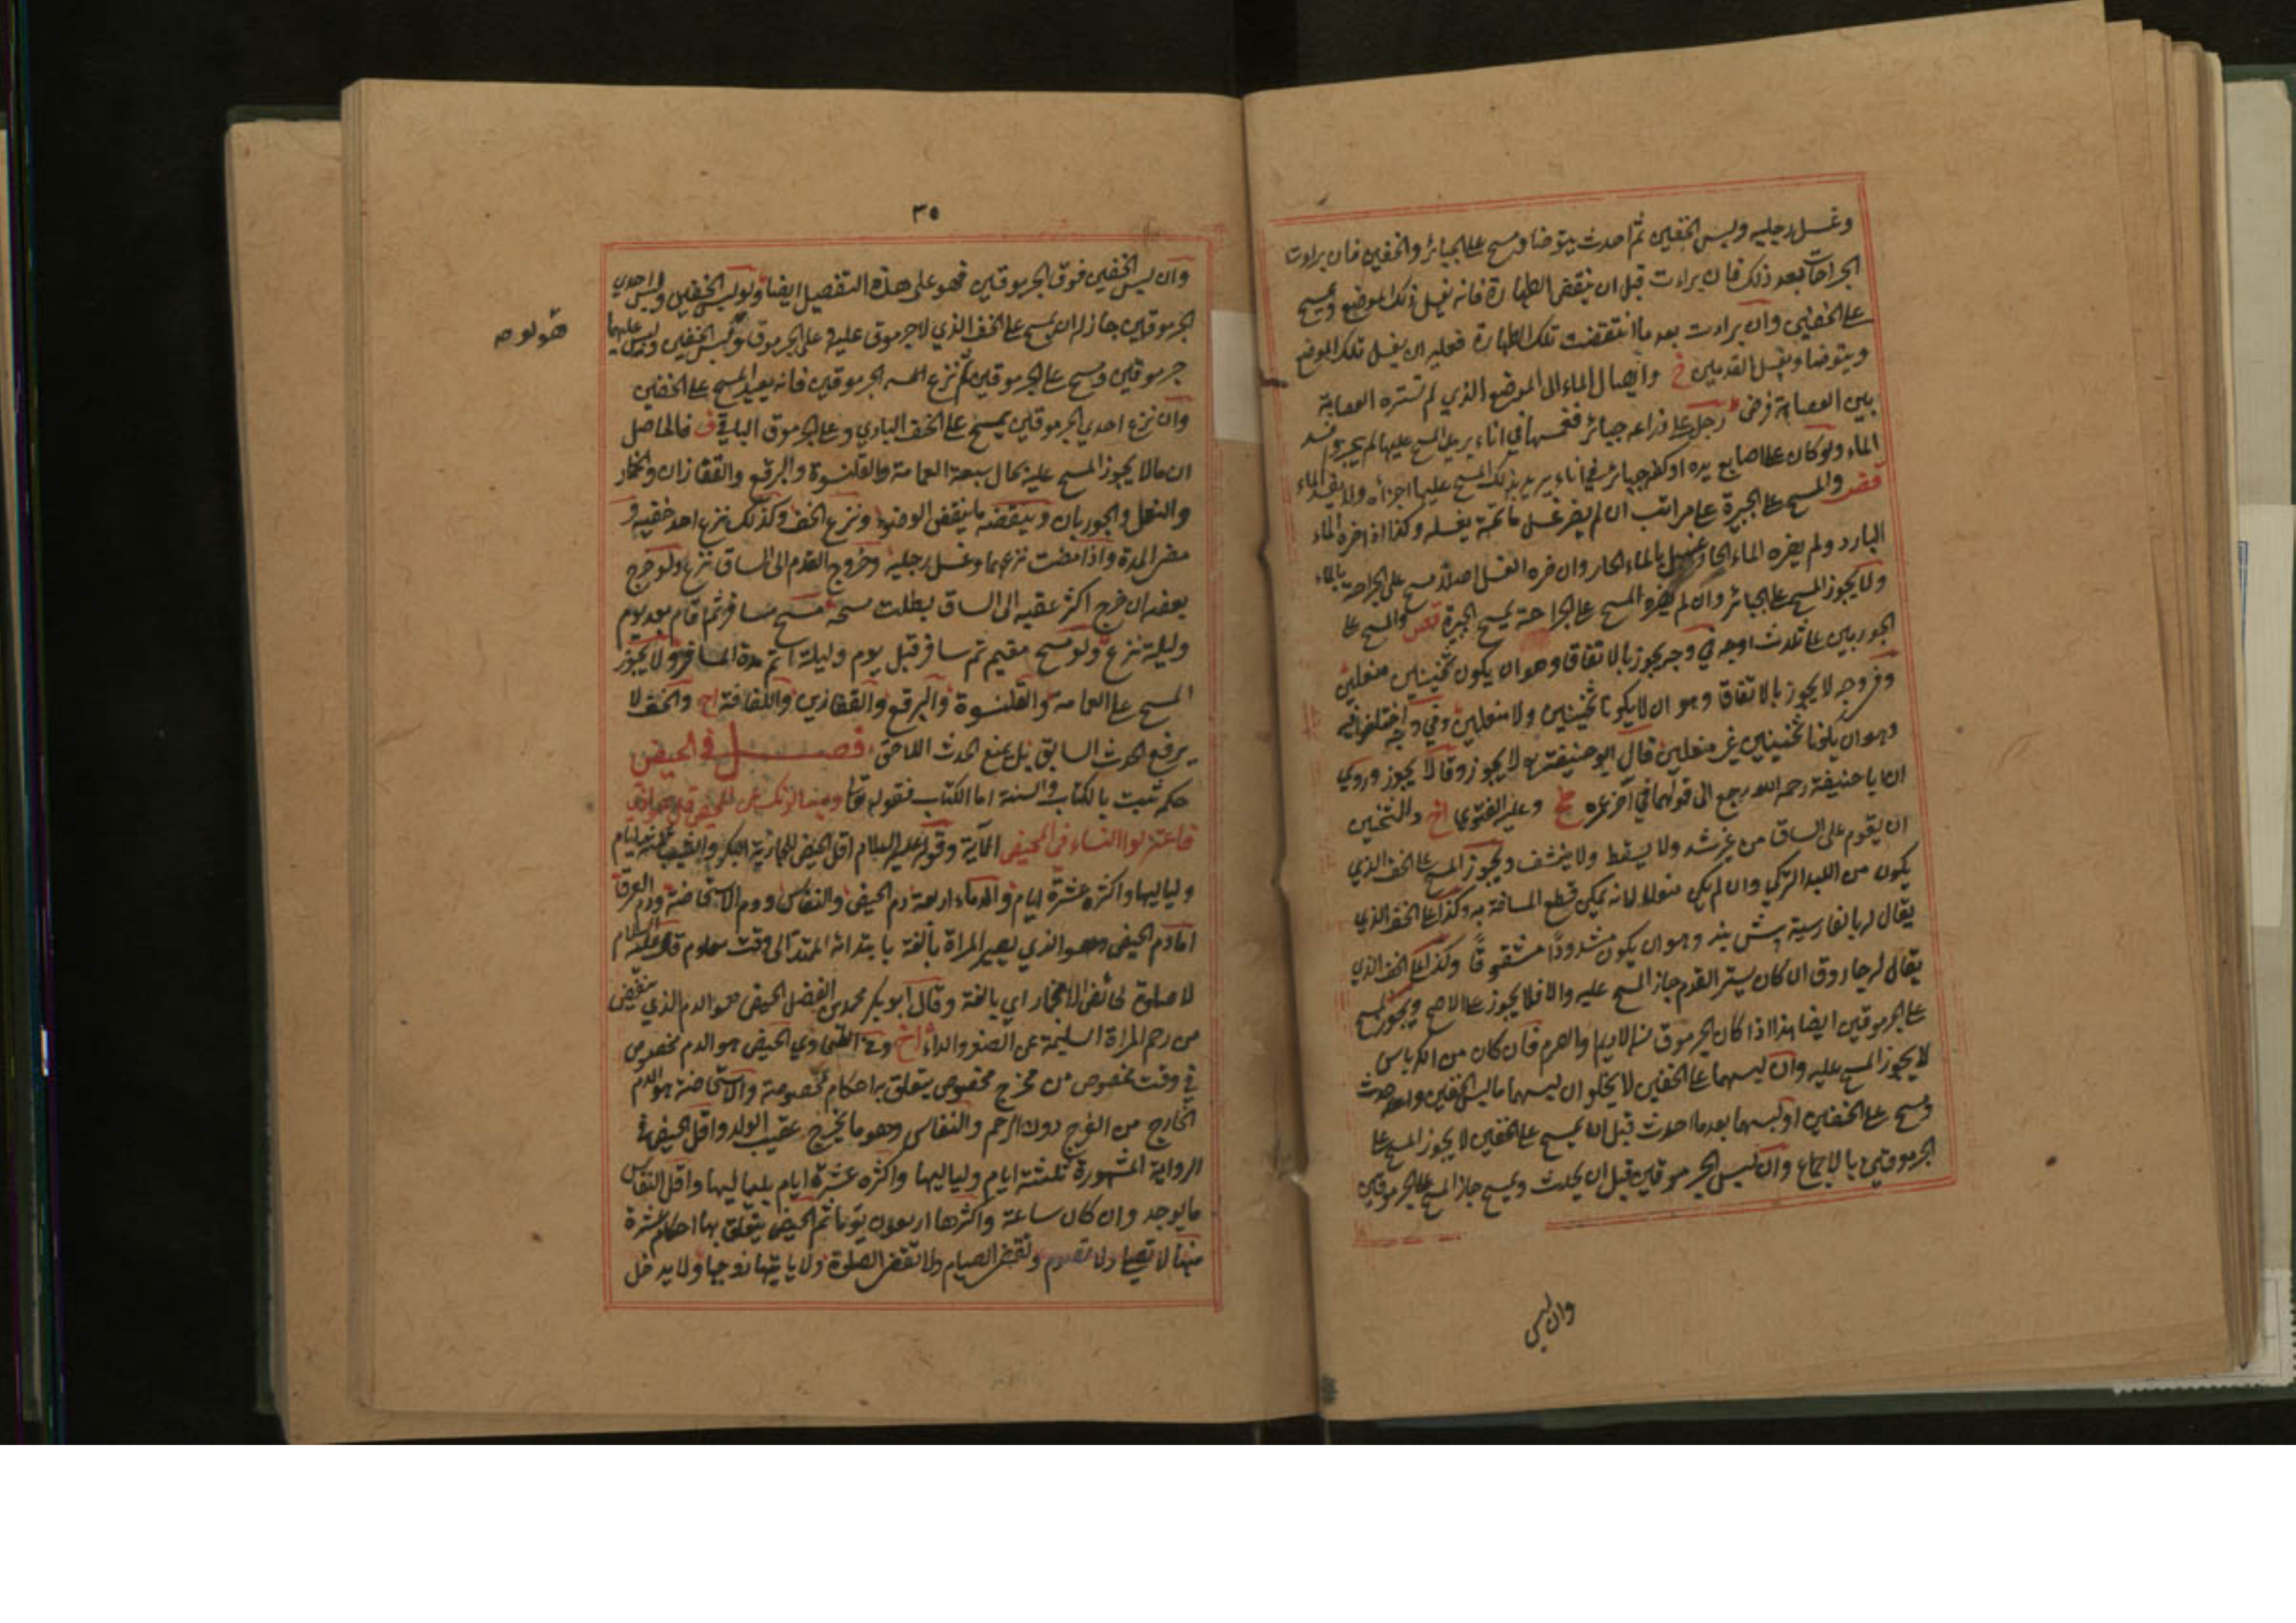 وغسل رجليه ولبس الخفين ثم احدث يتوضا ومسح على الجبائر والخفين فان براءت
الجراحات بعد ذلك فان براءت قبل ان ينقض الطهارة فانه يغسل ذلك الموضع ويمسح
على الخفين وان براءت بعد ما انتقضت تلك الطهارة فعليه ان يغسل تلك الموضع
ويتوضا ويغسل القدمين وايصال الماء الى الموضع الذي لم تستره العصابة
بين العصابة فرض رجل على ذراعه جبائر فغمسها في اناء يريد المسح عليها لم يجز وفسد
الماء ولو كان على اصابع يده او كفه جبائر في اناء يريد بذلك المسح عليها اجزاه ولا يفسد الماء
والمسح على الجبيرة على مراتب ان لم يضر غسل ما تحته يغسله وكذا اذا ضره الماء
البارد ولم يضره الماء الحار وغسل بالماء الحار وان ضره الغسل اصلا مسح على الجراحة بالماء
ولا يجوز المسح على الجبائر وان لم يضره المسح على الجراحة يمسح الجبيرة والمسح على
الجوربين على ثلاث اوجه في وجه يجوز بالاتفاق وهو ان يكون ثخينين منعلين
وفي وجه لا يجوز بالاتفاق وهو ان لا يكونا ثخينين ولا منعلين وفي وجه اختلفوا فيه
وهو ان يكونا ثخينين غير منعلين قال ابو حنيفة لا يجوز وقالا يجوز وروي
ان ابا حنيفة رحمه الله رجع الى قولهما في آخر عمره وعليه الفتوى والثخنين
ان يقوم على الساق من غير شد ولا يسقط ولا ينشف ويجوز المسح على الخف الذي
يكون من اللبد التركي وان لم يكن منعلا لانه يمكن قطع المسافة به وكذا على الخف الذي
يقال له بالفارسية پيش بند وهو ان يكون مشدودا مشقوقا وكذا على الخف الذي
يقال له جاروق ان كان يستر القدم جاز المسح عليه والا فلا يجوز على الاصح ويجوز المسح
على الجرموقين ايضا هذا اذا كان الجرموق من الاديم والصرم فان كان من الكرباس
لا يجوز المسح عليه وان لبسهما على الخفين لا يخلو ان لبسهما ما لبس الخفين واحدث
ومسح على الخفين او لبسهما بعد ما احدث قبل ان يمسح على الخفين لا يجوز المسح على
الجرموقين بالاجماع وان لبس الجرموقين قبل ان يحدث ويمسح جاز المسح على الجرموقين
وان لبس
٣٥
وان لبس الخفين فوق الجرموقين فهو على هذه التفصيل ايضا ولو لبس الخفين ولبس احدي
الجرموقين جاز له ان يمسح على الخف الذي لا جرموق عليه وعلى الجرموق ولو لبس الخفين ولبس عليهما
جرموقين ومسح على الجرموقين ثم نزع احد الجرموقين فانه يعيد المسح على الخفين
وان نزع احدي الجرموقين يمسح على الخف البادي وعلى الجرموق الباقي ف فالحاصل
ان ما لا يجوز المسح عليه بحال سبعة العمامة والقلنسوة والبرقع والقفازان والخمار
والنعل والجوربان وينقضه ما ينقض الوضوء ونزع الخف وكذلك نزع احد خفيه و
مضى المدة واذا مضت نزعهما وغسل رجليه وخروج القدم الى الساق نزع ولو خرج
بعضه ان خرج اكثر عقبه الى الساق بطلت مسحه مسح مسافر ثم اقام بعد يوم
وليلة نزع ولو مسح مقيم ثم سافر قبل يوم وليلة اتم مدة المسافر ولا يجوز
المسح على العمامة والقلنسوة والبرقع والقفازين واللفافة والخف لا
يرفع الحدث السابق بل يمنع الحدث اللاحق فصل في الحيض
حكمه ثبت بالكتاب والسنة اما الكتاب فقوله تعالى ويسئلونك عن المحيض قل هو اذي
فاعتزلوا النساء في المحيض الآية وقوله عليه السلام اقل الحيض للجارية البكر والثيب ثلثة ايام
ولياليها واكثره عشرة ايام والدماء اربعة دم الحيض والنفاس ودم الاستحاضة ودم العرق
اما دم الحيض وهو الذي يصير المراة بالغة بابتدائه الممتد الى وقت معلوم قال عليه السلام
لا صلوة لحائض الا بخمار اي بالغة وقال ابو بكر محمد بن الفضل الحيض هو الدم الذي ينفض
من رحم المراة السليمة عن الصغر والداء وفي الفتاوي الحيض هو الدم مخصوص
في وقت مخصوص من مخرج مخصوص يتعلق به احكام مخصوصة والاستحاضة هو الدم
الخارج من الفرج دون الرحم والنفاس وهو ما يخرج عقيب الولد واقل الحيض في
الرواية المشهورة ثلثة ايام ولياليها واكثره عشرة ايام بلياليها واقل النفاس
ما يوجد وان كان ساعة واكثرها اربعون يوما ثم الحيض يتعلق بها احكام عشرة
منها لا تصلي ولا تصوم وتقضى الصيام ولا تقضى الصلوة ولا ياتيها زوجها ولا يدخل